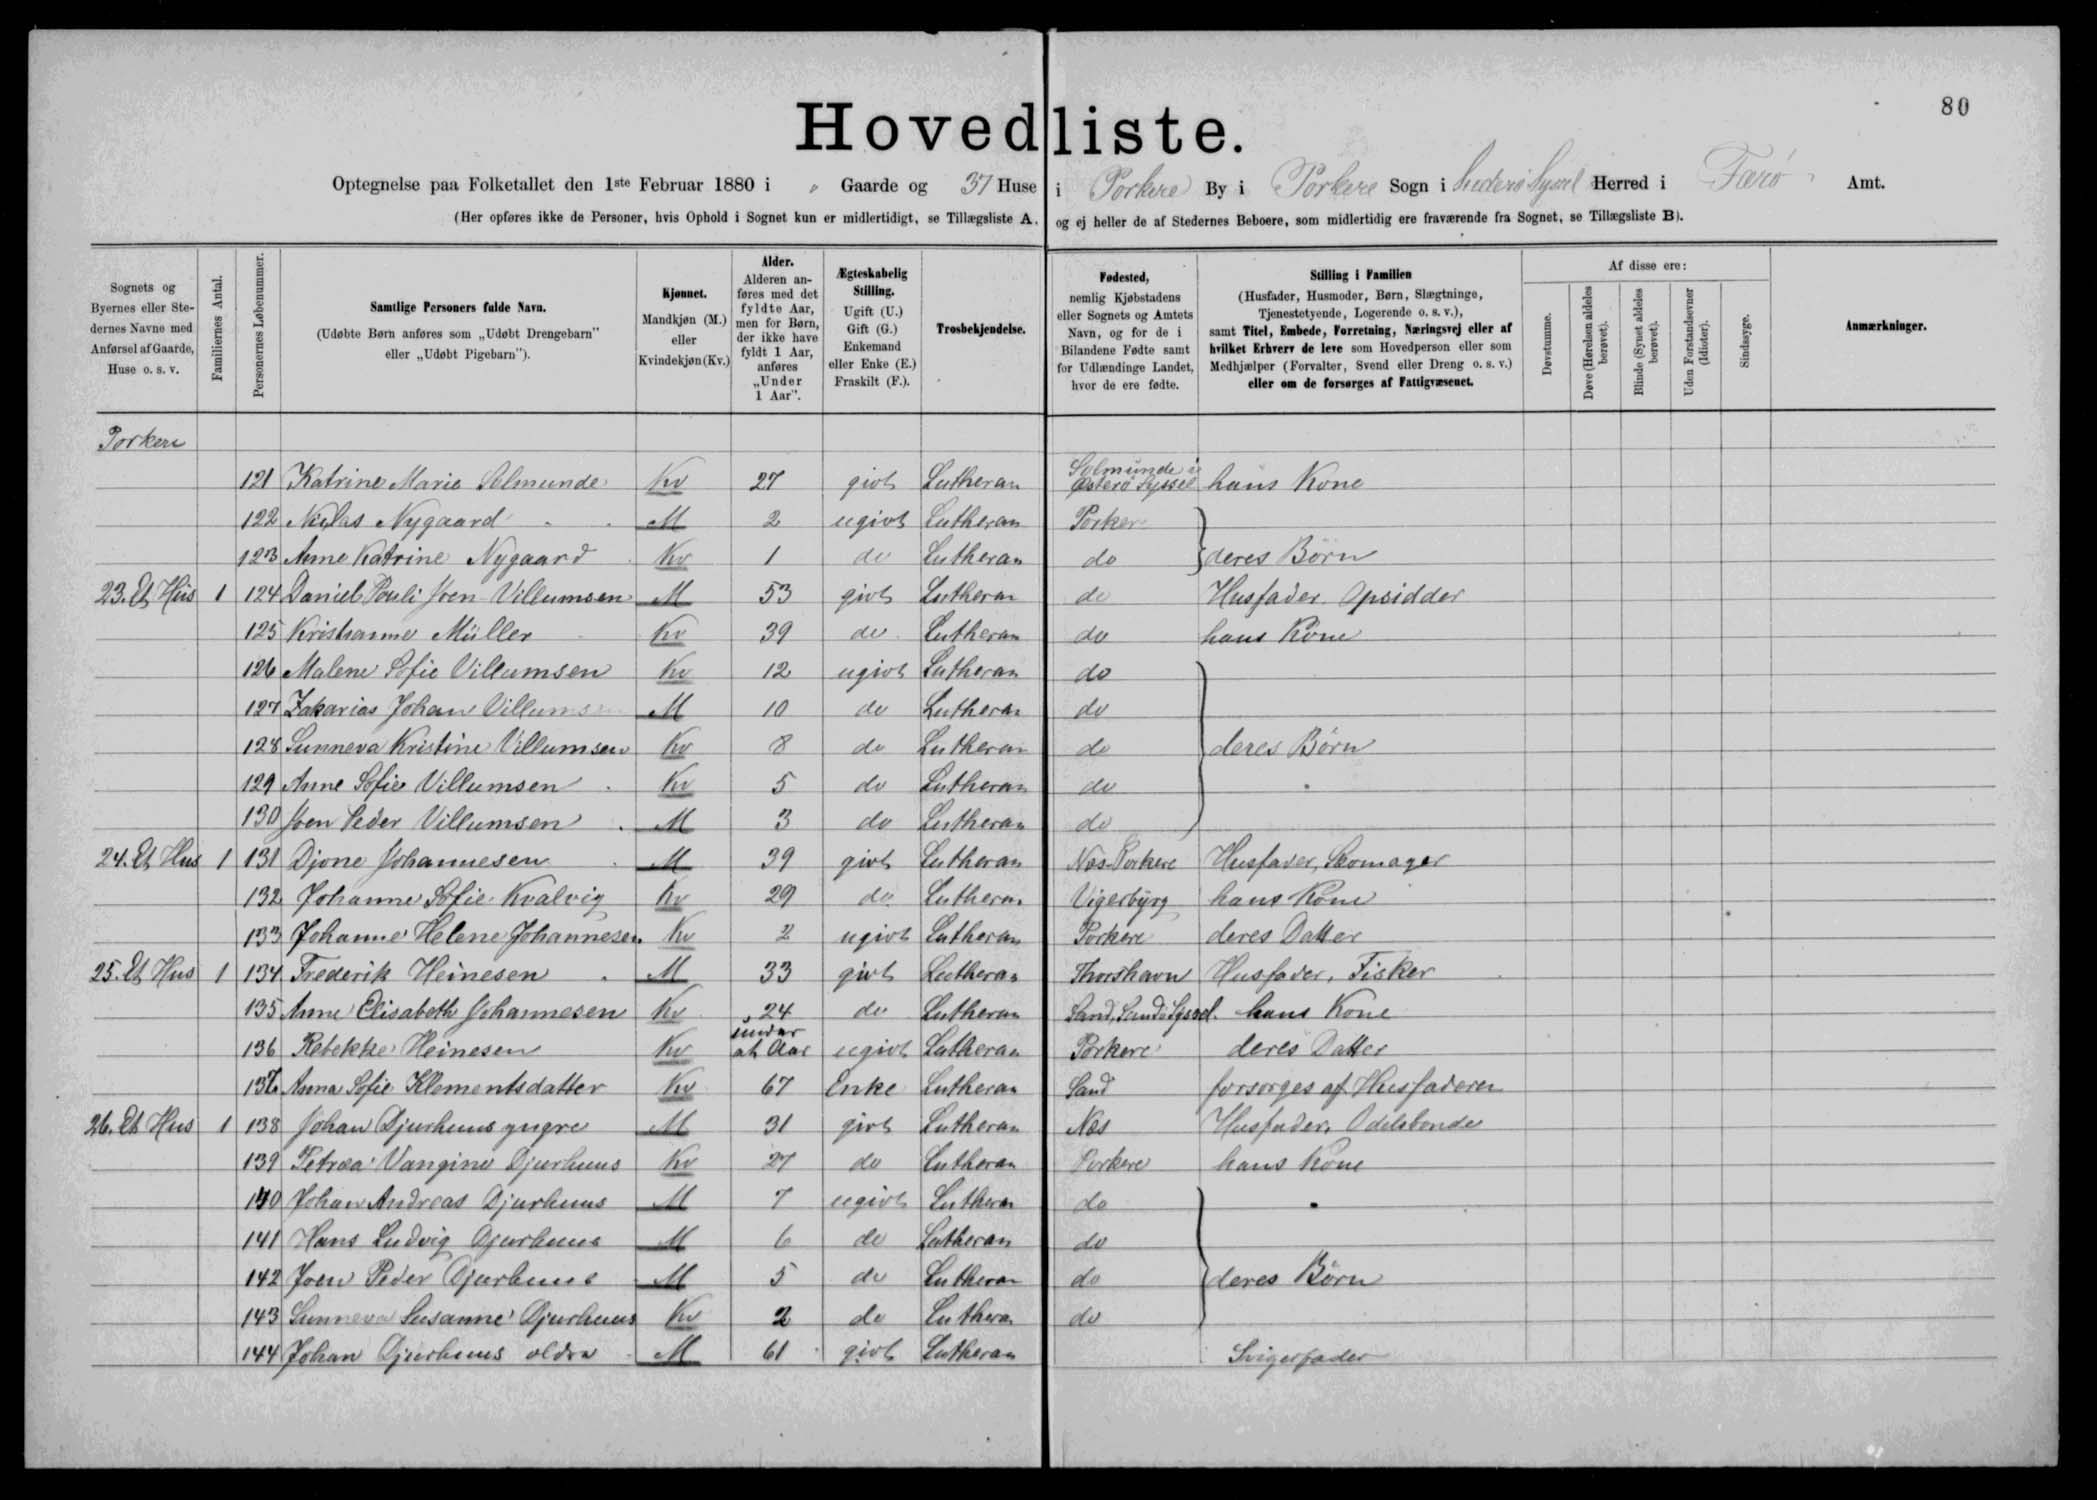 80
Hovedliste.
Optegnelse paa Folketallet den 1ste Februar 1880 i " Gaarde og 37 Huse i Porkere By i Porkere Sogn i Suderø Syssel Herred i Færø Amt.
(Her opføres ikke de Personer, hvis Ophold i Sognet kun er midlertidigt, se Tillægsliste A. og ej heller de af Stedernes Beboere, som midlertidig ere fraværende fra Sognet, se Tillægsliste B).
Sognets og Byernes eller Stedernes Navne med Anførsel af Gaarde, Huse o. s. v.
Familiernes Antal.
Personernes Løbenummer.
Samtlige Personers fulde Navn.
(Udøbte Børn anføres som „Udøbt Drengebarn" eller „Udøbt Pigebarn").
Kjønnet.
Mandkjøn (M.) eller Kvindekjøn (Kv.)
Alder.
Alderen anføres med det fyldte Aar, men for Børn, der ikke have fyldt 1 Aar, anføres „Under 1 Aar".
Ægteskabelig Stilling.
Ugift (U.) Gift (G.) Enkemand eller Enke (E.) Fraskilt (F.).
Trosbekjendelse.
Fødested,
nemlig Kjøbstadens eller Sognets og Amtets Navn, og for de i Bilandene Fødte samt for Udlændinge Landet, hvor de ere fødte.
Stilling i Familien
(Husfader, Husmoder, Børn, Slægtninge, Tjenestetyende, Logerende o. s. v.),
samt Titel, Embede, Forretning, Næringsvej eller af hvilket Erhverv de leve som Hovedperson eller som Medhjælper (Forvalter, Svend eller Dreng o. s. v.) eller om de forsørges af Fattigvæsenet.
Af disse ere:
Døvstumme.
Døve (Hørelsen aldeles berøvet).
Blinde (Synet aldeles berøvet).
Uden Forstandsevner (Idioter).
Sindssyge.
Anmærkninger.
Porkere
121 Katrine Marie Solmunde Kv 27 givt Lutheran Solmunde i Østerø Syssel hans Kone
122 Niclas Nygaard M 2 ugivt Lutheran Porkere
123 Anne Katrine Nygaard Kv 1 do Lutheran do deres Børn
23. Et Hus 1 124 Daniel Pouli Joen Villumsen M 53 givt Lutheran do Husfader Opsidder
125 Kristianne Müller Kv 39 do Lutheran do hans Kone
126 Malene Sofie Villumsen Kv 12 ugivt Lutheran do
127 Zakarias Johan Villumsen M 10 do Lutheran do
128 Sunneva Kristine Villumsen Kv 8 do Lutheran do deres Børn
129 Anne Sofie Villumsen Kv 5 do Lutheran do
130 Joen Peder Villumsen M 3 do Lutheran do
24. Et Hus 1 131 Djone Johannesen M 39 givt Lutheran Nes Porkere Husfader, Skomager
132 Johanne Sofie Kvalvig Kv 29 do Lutheran Vigerbyrg hans Kone
133 Johanne Helene Johannesen Kv 2 ugivt Lutheran Porkere deres Datter
25. Et Hus 1 134 Frederik Heinesen M 33 givt Lutheran Thorshavn Husfader, Fisker
135 Anne Elisabeth Johannesen Kv 24 do Lutheran Sand, Sandø Syssel. hans Kone
136 Rebekke Heinesen Kv under et Aar ugivt Lutheran Porkere deres Datter
137 Anna Sofie Klementsdatter Kv 67 Enke Lutheran Sand forsørges af Husfaderen
26. Et Hus 1 138 Johan Djurhuus yngre M 31 givt Lutheran Nes Husfader, Odelsbonde
139 Petræa Vangine Djurhuus Kv 27 do Lutheran Porkere hans Kone
140 Johan Andreas Djurhuus M 7 ugivt Lutheran do
141 Hans Ludvig Djurhuus M 6 do Lutheran do
142 Joen Peder Djurhuus M 5 do Lutheran do deres Børn
143 Sunneva Susanne Djurhuus Kv 2 do Lutheran do
144 Johan Djurhuus ældre M 61 givt Lutheran Svigerfader